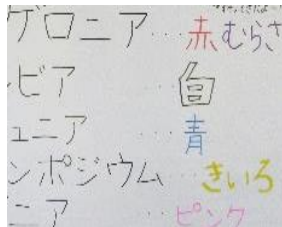 ゲロニア…赤むらさ
ビア…白
ュニア…青
ンポジウム…きいろ
ニア…ピンク